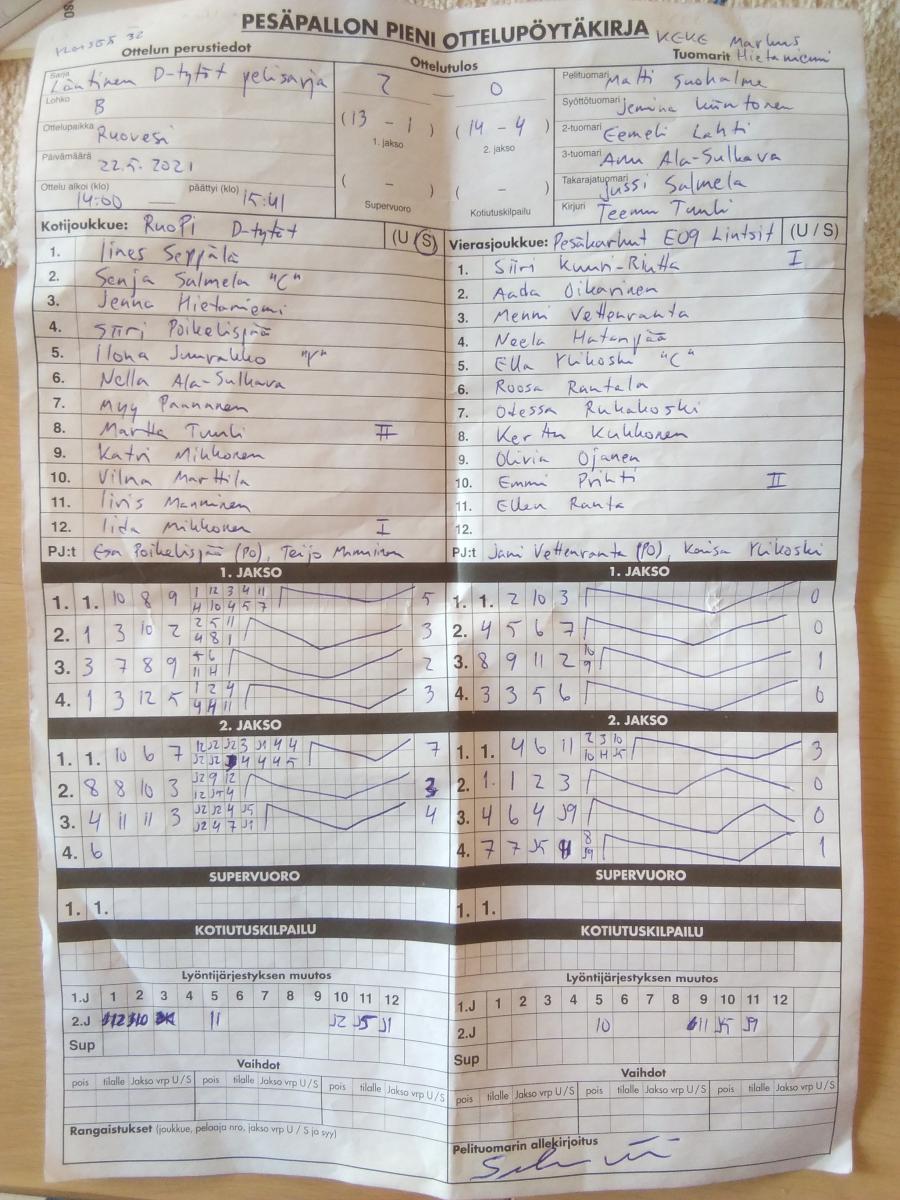 PESÄPALLON PIENI OTTELUPÖYTÄKIRJA
KEKE Markus Hietaniemi
Ottelun perustiedot
Ottelutulos
Tuomarit
Sarja Läntinen D-tytöt pelisarja
Lohko B
Ottelupaikka Ruovesi
Päivämäärä 22.5.2021
Ottelu alkoi (klo) 14:00 päättyi (klo) 15:41
2 – 0
(13 – 1) 1. jakso
(14 – 4) 2. jakso
( – ) Supervuoro
( – ) Kotiutuskilpailu
Pelituomari Matti Suohalme
Syöttötuomari Jemina Kiintonen
2-tuomari Eemeli Lahti
3-tuomari Anu Ala-Sulkava
Takarajatuomari Jussi Salmela
Kirjuri Teemu Tuuli
Kotijoukkue: RuoPi D-tytöt (U / S)
1. Iines Seppälä
2. Senja Salmela "C"
3. Jenna Hietaniemi
4. Siiri Poikelispää
5. Ilona Juurakko "V"
6. Nella Ala-Sulkava
7. Myy Paananen
8. Martta Tuuli II
9. Katri Mikkonen
10. Vilma Marttila
11. Iiris Manninen
12. Iida Mikkonen I
PJ:t Esa Poikelispää (PO), Teijo Manninen
Vierasjoukkue: Pesäkarhut E09 Lintsit (U / S)
1. Siiri Kuuri-Riutta I
2. Aada Oikarinen
3. Menni Vettenranta
4. Neela Hatanpää
5. Ella Ylikoski "C"
6. Roosa Rantala
7. Odessa Ruhakoski
8. Kerttu Kukkonen
9. Olivia Ojanen
10. Emmi Prihti II
11. Ellen Ranta
12.
PJ:t Jani Vettenranta (PO), Kaisa Ylikoski
1. JAKSO
1. 1. 10 8 9 1 12 3 4 11 5
4 10 4 5 7
2. 1 3 10 2 2 5 11 3
4 8 1
3. 3 7 8 9 2
4. 1 3 12 5 1 2 4 3
4 4 11
1. JAKSO
1. 1. 2 10 3 0
2. 4 5 6 7 0
3. 8 9 11 2 10 1
9
4. 3 3 5 6 0
2. JAKSO
1. 1. 10 6 7 7
2. 8 8 10 3 3
3. 4 11 11 3 4
4. 6
2. JAKSO
1. 1. 4 6 11 2 3 10 3
2. 1. 1 2 3 0
3. 4 6 4 J9 0
4. 7 7 J5 1
SUPERVUORO
1. 1.
SUPERVUORO
1. 1.
KOTIUTUSKILPAILU
KOTIUTUSKILPAILU
Lyöntijärjestyksen muutos
1.J 1 2 3 4 5 6 7 8 9 10 11 12
2.J 11 J2 J5 J1
Sup
Lyöntijärjestyksen muutos
1.J 1 2 3 4 5 6 7 8 9 10 11 12
2.J 10 11 J5 J9
Sup
Vaihdot
pois tilalle Jakso vrp U / S pois tilalle Jakso vrp U / S pois tilalle Jakso vrp U / S
Vaihdot
pois tilalle Jakso vrp U / S pois tilalle Jakso vrp U / S pois tilalle Jakso vrp U / S
Rangaistukset (joukkue, pelaaja nro, jakso vrp U / S ja syy)
Pelituomarin allekirjoitus